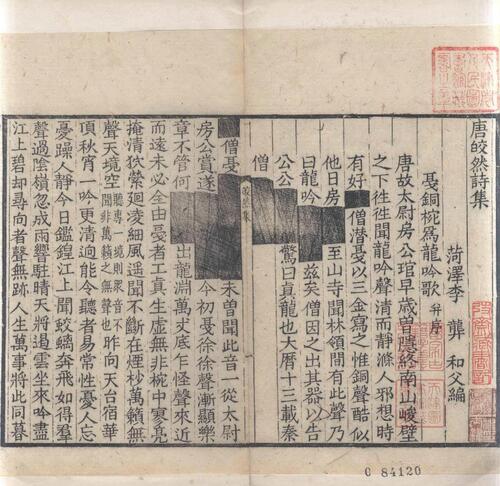 唐皎然詩集
菏澤李龏和父編
戞銅椀爲龍吟歌 并序
唐故太尉房公琯早歲曾隱終南山峻壁
之下往往聞龍吟聲清而靜滌人邪想時
有好 僧潛戞以三金寫之惟銅聲酷似
他日房 至山寺聞林嶺間有此聲乃
曰龍吟 兹矣僧因之出其器以告
公公 驚曰真龍吟也大曆十三載秦
僧
皎然集
僧戞
房公賞遂 未曾聞此音 從太尉
章不管何 今初戞徐徐聲漸顯樂
而遠未必全由戞者工真生虛無非椀中寥亮
出龍淵萬丈底乍怪聲來近
掩清猋縈迴凌細風遥聞不斷在煙杪萬籟無
聲天境空 聽專一境則衆音不
聞非萬籟之無聲也 昨向天台宿華
頂秋宵一吟更清迥能令聽者易常性憂人忘
憂躁人靜今日鑑鍠江上聞蛟螭奔飛如得羣
聲過陰嶺忽成雨響駐晴天將遏雲坐來吟盡
江上碧却尋向者聲無跡人生萬事將此同暮
C 84120